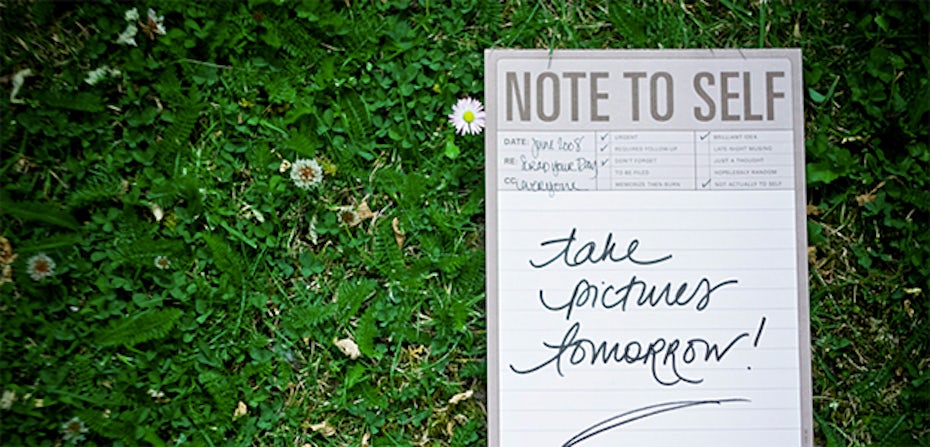 NOTE TO SELF
DATE: June 2008
RE: SCRAP YOUR DAY
CC: everyone
✓ URGENT
✓ REQUIRES FOLLOW-UP
✓ DON'T FORGET
TO BE FILED
MEMORIZE THEN BURN
✓ BRILLIANT IDEA
LATE NIGHT MUSING
JUST A THOUGHT
HOPELESSLY RANDOM
✓ NOT ACTUALLY TO SELF
take
pictures
tomorrow!